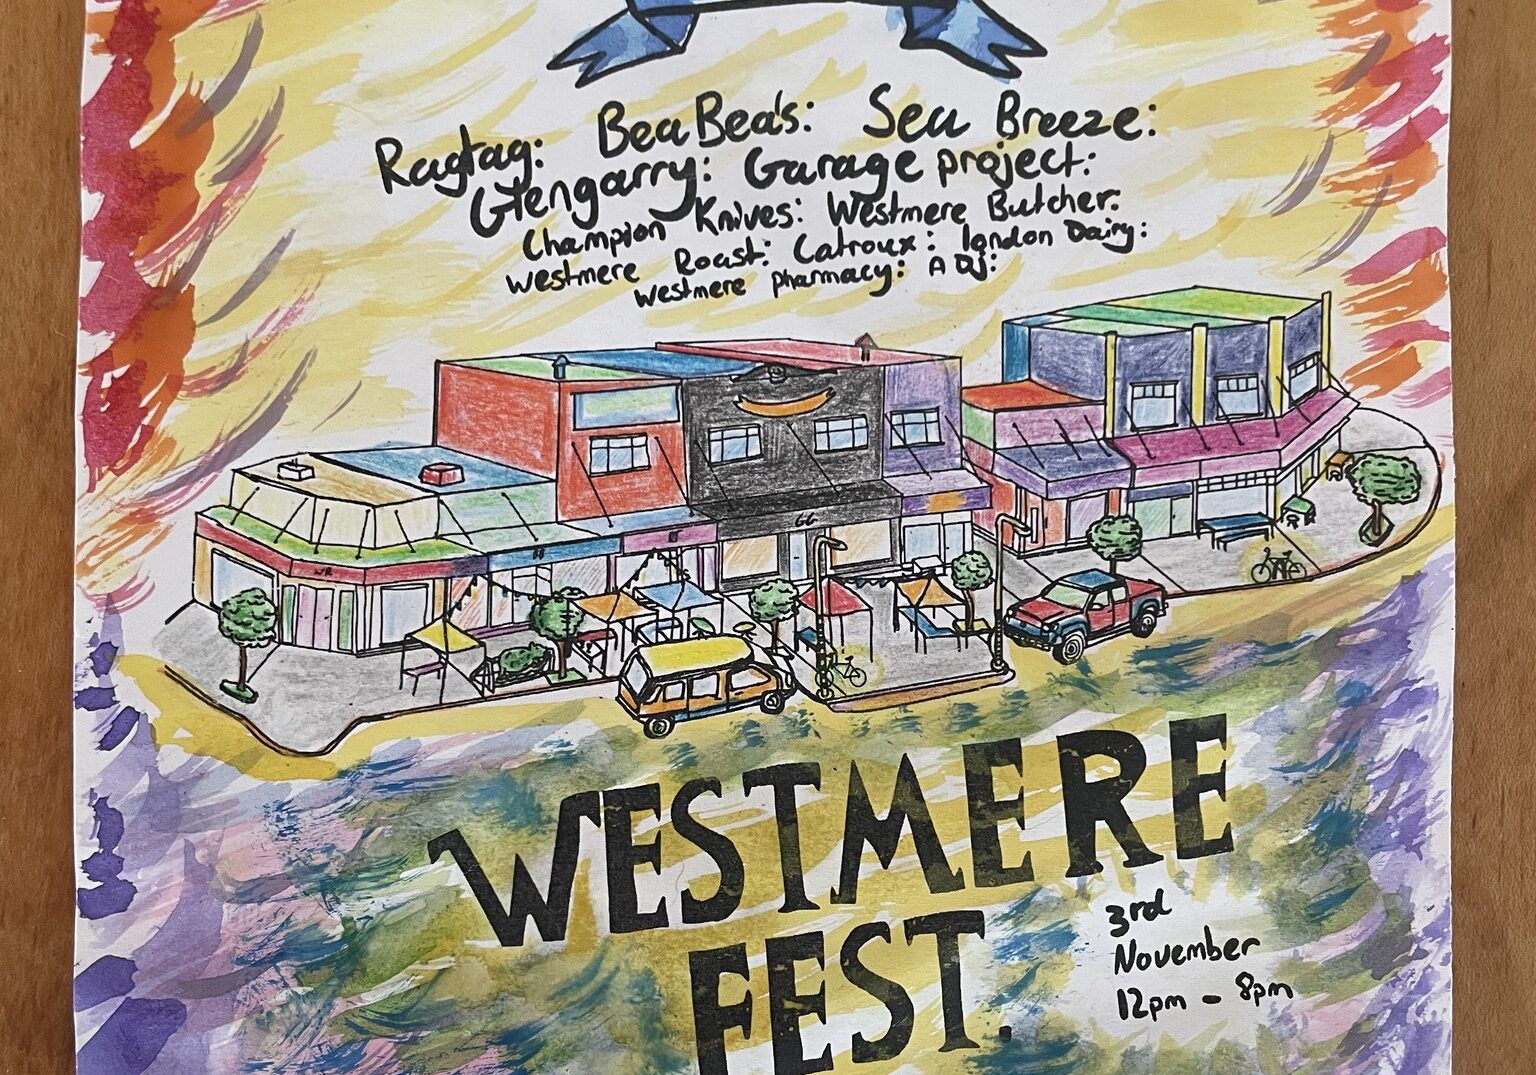 Ragtag: BeaBea's: Sea Breeze:
Glengarry: Garage project:
Champion Knives: Westmere Butcher:
Westmere Roast: Catroux: london Dairy:
Westmere pharmacy: A DJ:
GG
WESTMERE
FEST.
3rd
November
12pm - 8pm